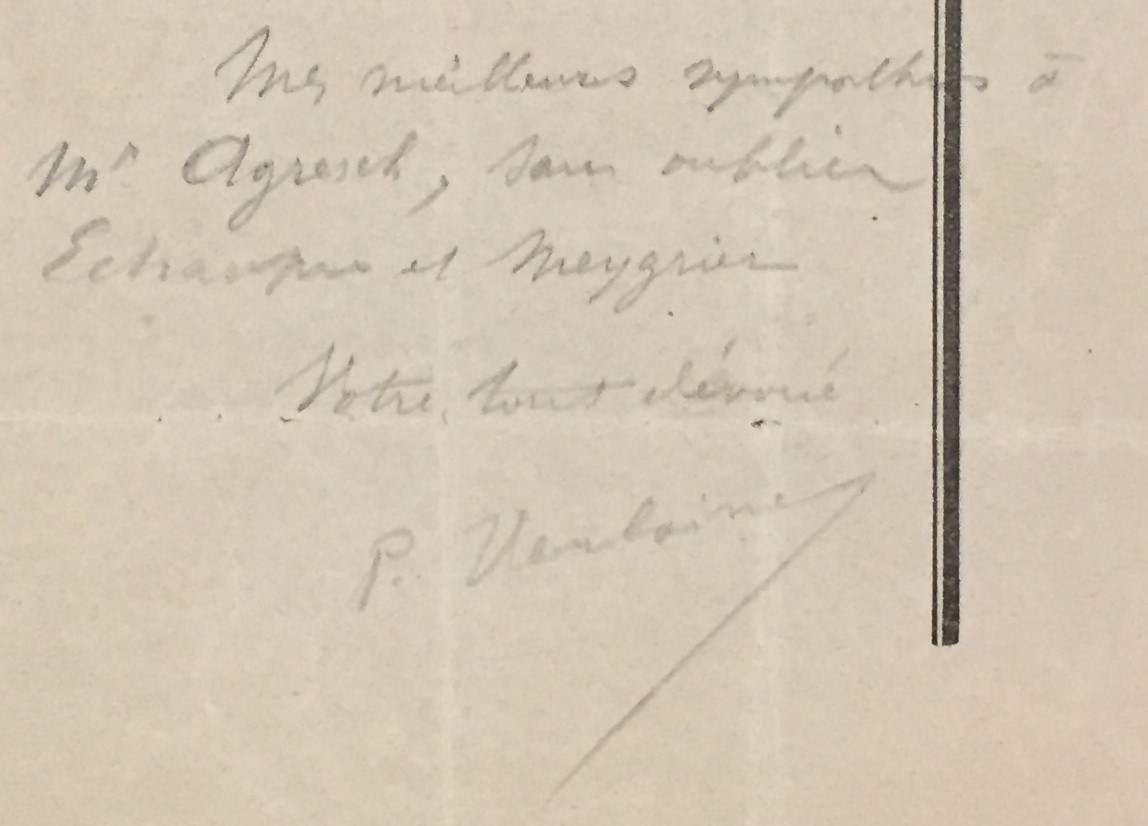 Mes meilleures sympathies à
Mr Agresch, sans oublier
et Meygrier
Votre tout dévoué
P. Verlaine